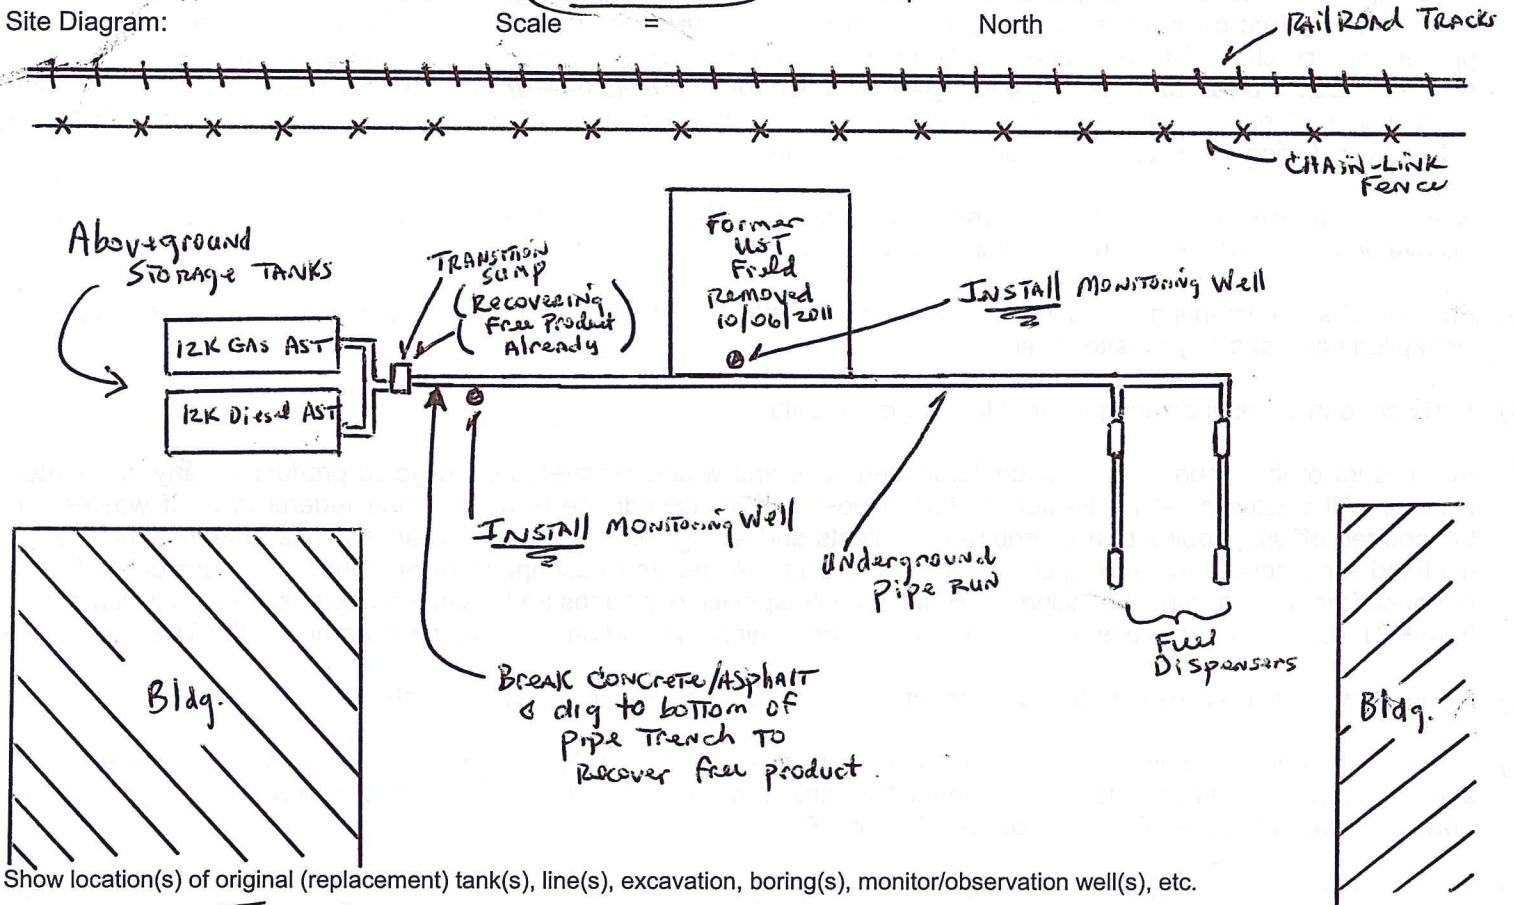 Site Diagram:
Scale =
North
RAILROAD TRACKS
CHAIN-LINK
Fence
Aboveground
STORAGE TANKS
TRANSITION
SUMP
(Recovering
Free Product
Already)
Former
UST
Field
Removed
10/06/2011
INSTALL MONITORING Well
12K GAS AST
12K Diesel AST
INSTALL MONITORING Well
UNderground
Pipe RUN
Fuel
Dispensers
BREAK CONCRETE/ASPHALT
& dig to bottom of
pipe Trench TO
Recover free product.
Bldg.
Bldg.
Show location(s) of original (replacement) tank(s), line(s), excavation, boring(s), monitor/observation well(s), etc.